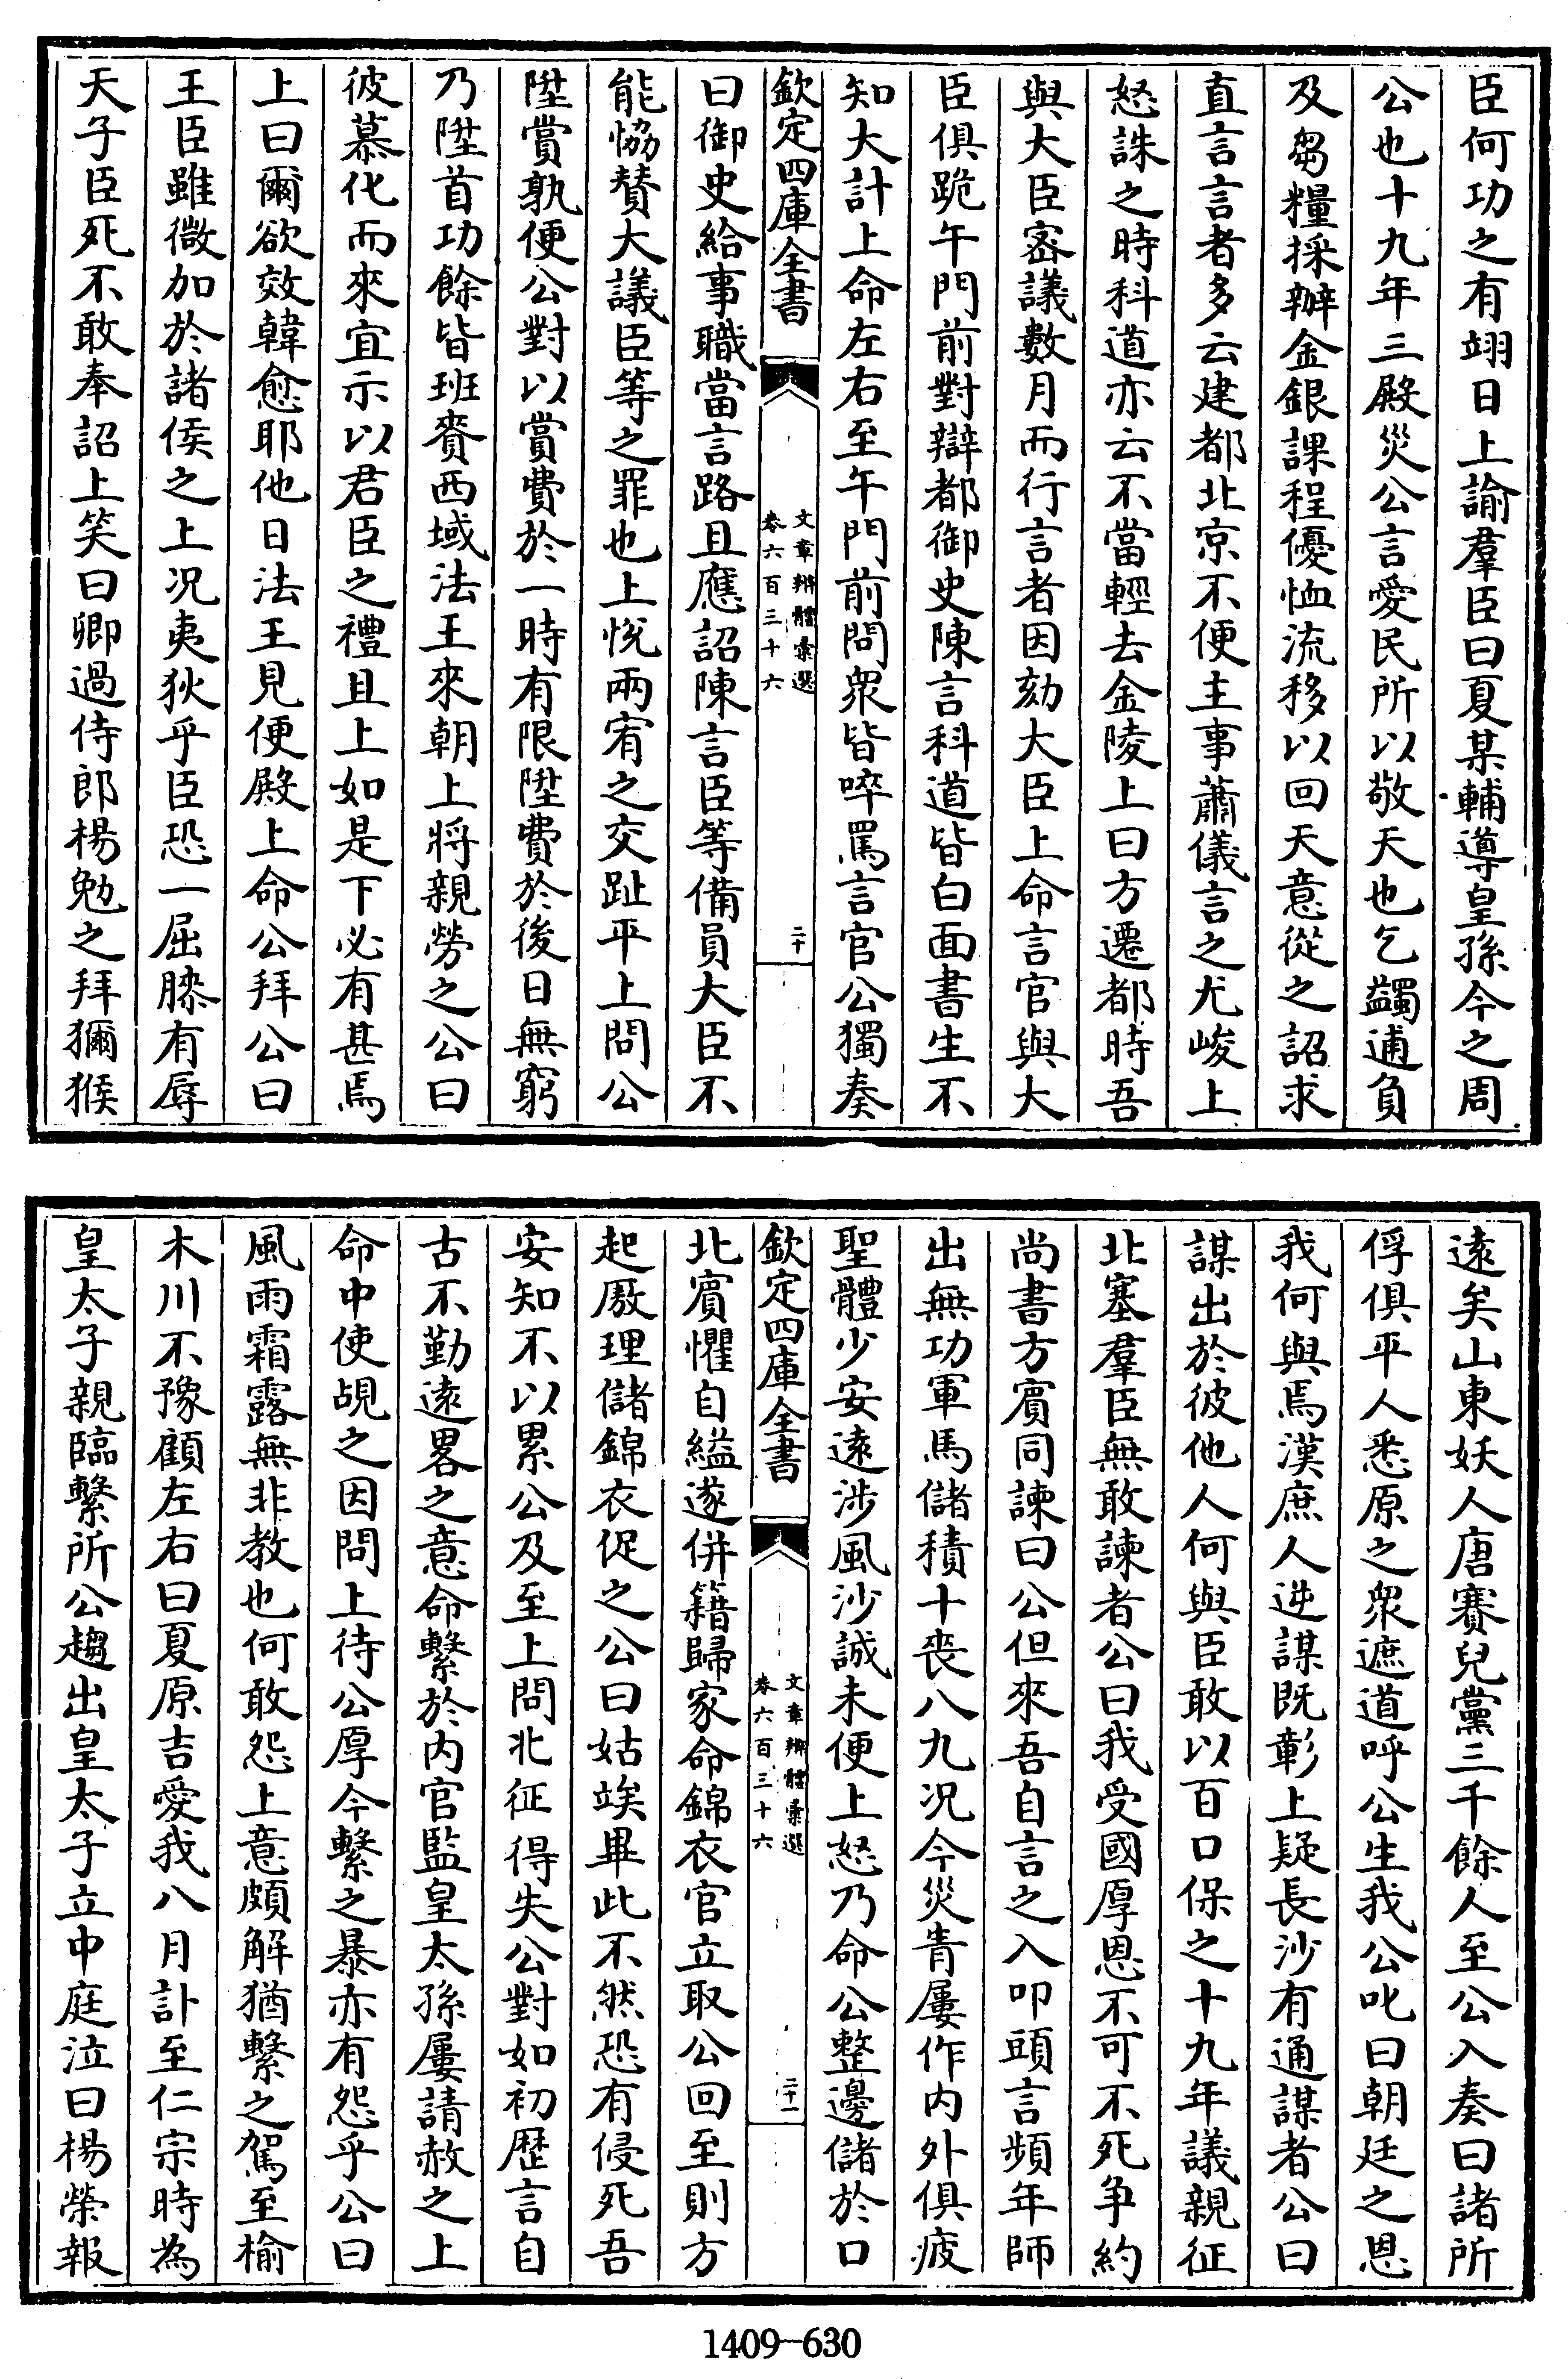 臣何功之有翊日上諭羣臣曰夏某輔導皇孫今之周
公也十九年三殿災公言愛民所以敬天也乞蠲逋負
及芻糧採辦金銀課程優恤流移以回天意從之詔求
直言言者多云建都北京不便主事蕭儀言之尤峻上
怒誅之時科道亦云不當輕去金陵上曰方遷都時吾
與大臣密議數月而行言者因劾大臣上命言官與大
臣俱跪午門前對辯都御史陳言科道皆白面書生不
知大計上命左右至午門前問衆皆啐罵言官公獨奏
欽定四庫全書
文章辨體彙選
卷六百三十六
二十
曰御史給事職當言路且應詔陳言臣等備員大臣不
能恊贊大議臣等之罪也上悅兩宥之交趾平上問公
陞賞孰便公對以賞費於一時有限陞費於後日無窮
乃陞首功餘皆班賚西域法王來朝上將親勞之公曰
彼慕化而來宜示以君臣之禮且上如是下必有甚焉
上曰爾欲效韓愈耶他日法王見便殿上命公拜公曰
王臣雖微加於諸侯之上况夷狄乎臣恐一屈膝有辱
天子臣死不敢奉詔上笑曰卿過侍郎楊勉之拜獼猴
遠矣山東妖人唐賽兒黨三千餘人至公入奏曰諸所
俘俱平人悉原之衆遮道呼公生我公叱曰朝廷之恩
我何與焉漢庶人逆謀既彰上疑長沙有通謀者公曰
謀出於彼他人何與臣敢以百口保之十九年議親征
北塞羣臣無敢諫者公曰我受國厚恩不可不死爭約
尚書方賓同諫曰公但來吾自言之入叩頭言頻年師
出無功軍馬儲積十喪八九况今災眚屢作内外俱疲
聖體少安遠涉風沙誠未便上怒乃命公整邊儲於口
欽定四庫全書
文章辨體彙選
卷六百三十六
二十一
北賓懼自縊遂併籍歸家命錦衣官立取公回至則方
起厫理儲錦衣促之公曰姑竢畢此不然恐有侵死吾
安知不以累公及至上問北征得失公對如初歴言自
古不勤遠畧之意命繫於内官監皇太孫屢請赦之上
命中使覘之因問上待公厚今繫之暴亦有怨乎公曰
風雨霜露無非教也何敢怨上意頗解猶繫之駕至榆
木川不豫顧左右曰夏原吉愛我八月訃至仁宗時為
皇太子親臨繫所公趨出皇太子立中庭泣曰楊榮報
1409-630